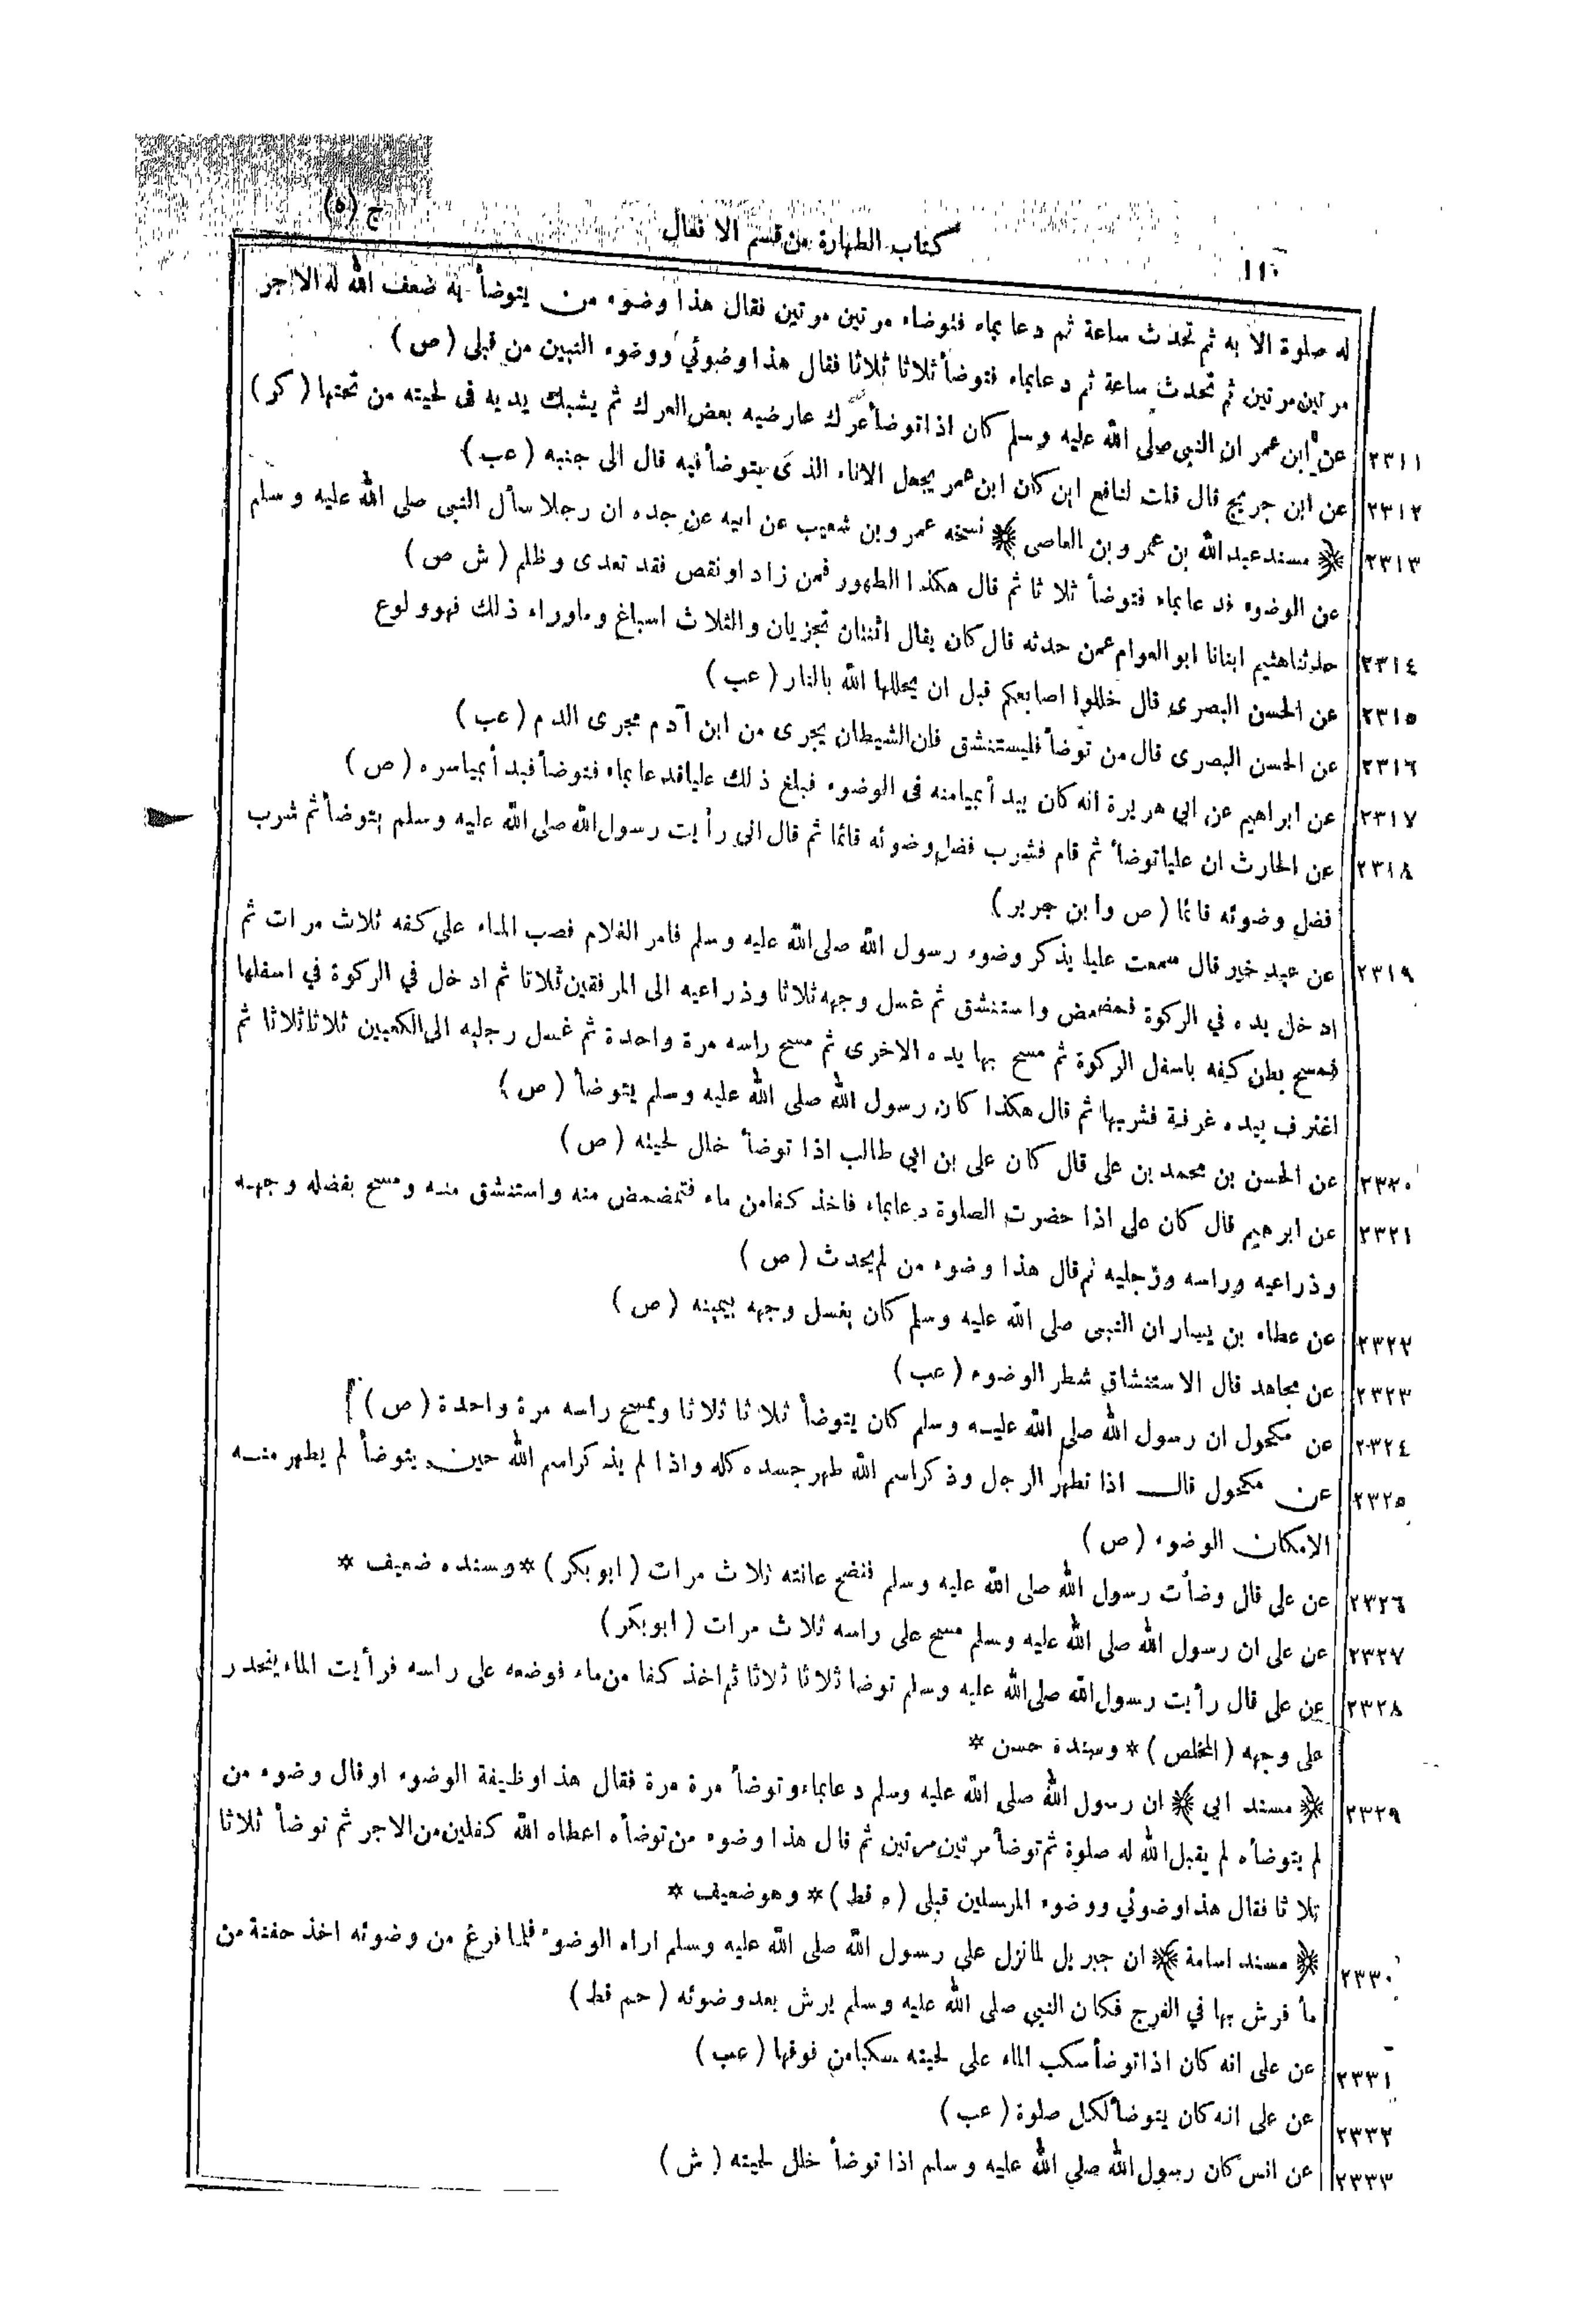 ج (٥)
كتاب الطهارة من قسم الافعال
له صلوة الا به ثم تحدث ساعة ثم دعا بماء فتوضاء مرتين مرتين فقال هذا وضوء من يتوضأ به ضعف الله له الاجر
مرتين مرتين ثم تحدث ساعة ثم دعا بماء فتوضأ ثلاثا ثلاثا فقال هذا وضوئي ووضوء النبيين من قبلى (ص)
٢٣١١ عن ابن عمر ان النبي صلى الله عليه وسلم كان اذا توضأ عرك عارضيه بعض العرك ثم يشبك يديه فى لحيته من تحتها (كر)
٢٣١٢ عن ابن جريج قال قلت لنافع اين كان ابن عمر يجعل الاناء الذى يتوضأ فيه قال الى جنبه (عب)
٢٣١٣ مسند عبد الله بن عمرو بن العاصى نسخه عمرو بن شعيب عن ابيه عن جده ان رجلا سأل النبى صلى الله عليه وسلم
عن الوضوء فدعا بماء فتوضأ ثلاثا ثم قال هكذا الطهور فمن زاد او نقص فقد تعدى وظلم (ش ص)
٢٣١٤ حدثنا هشيم انبانا ابو العوام عمن حدثه قال كان يقال اثنتان تجزيان والثلاث اسباغ وماوراء ذلك فهو ولوع
٢٣١٥ عن الحسن البصرى قال خللوا اصابعكم قبل ان يخللها الله بالنار (عب)
٢٣١٦ عن الحسن البصرى قال من توضأ فليستنشق فان الشيطان يجرى من ابن آدم مجرى الدم (عب)
٢٣١٧ عن ابراهيم عن ابي هريرة انه كان يبدأ بميامنه فى الوضوء فبلغ ذلك عليا فدعا بماء فتوضأ فبدأ بمياسره (ص)
٢٣١٨ عن الحارث ان عليا توضأ ثم قام فشرب فضل وضوئه قائما ثم قال انى رأيت رسول الله صلى الله عليه وسلم يتوضأ ثم شرب
فضل وضوئه قائما (ص وابن جرير)
٢٣١٩ عن عبد خير قال سمعت عليا يذكر وضوء رسول الله صلى الله عليه وسلم فامر الغلام فصب الماء على كفه ثلاث مرات ثم
ادخل يده في الركوة فمضمض واستنشق ثم غسل وجهه ثلاثا وذراعيه الى المرفقين ثلاثا ثم ادخل في الركوة في اسفلها
فمسح بطن كفه باسفل الركوة ثم مسح بها يده الاخرى ثم مسح راسه مرة واحدة ثم غسل رجليه الى الكعبين ثلاثا ثلاثا ثم
اغترف بيده غرفة فشربها ثم قال هكذا كان رسول الله صلى الله عليه وسلم يتوضأ (ص)
٢٣٢٠ عن الحسن بن محمد بن على قال كان على بن ابي طالب اذا توضأ خلل لحيته (ص)
٢٣٢١ عن ابرهيم قال كان على اذا حضرت الصلوة دعا بماء فاخذ كفا من ماء فتمضمض منه واستنشق منه ومسح بفضله وجهه
وذراعيه وراسه ورجليه ثم قال هذا وضوء من لم يحدث (ص)
٢٣٢٢ عن عطاء بن يسار ان النبى صلى الله عليه وسلم كان يغسل وجهه بيمينه (ص)
٢٣٢٣ عن مجاهد قال الاستنشاق شطر الوضوء (عب)
٢٣٢٤ عن مكحول ان رسول الله صلى الله عليه وسلم كان يتوضأ ثلاثا ثلاثا ويمسح راسه مرة واحدة (ص)
٢٣٢٥ عن مكحول قال اذا تطهر الرجل وذكر اسم الله طهر جسده كله واذا لم يذكر اسم الله حين يتوضأ لم يطهر منه
الامكان الوضوء (ص)
٢٣٢٦ عن على قال وضأت رسول الله صلى الله عليه وسلم فنضح عانته ثلاث مرات (ابوبكر) * وسنده ضعيف *
٢٣٢٧ عن على ان رسول الله صلى الله عليه وسلم مسح على راسه ثلاث مرات (ابوبكر)
٢٣٢٨ عن على قال رأيت رسول الله صلى الله عليه وسلم توضا ثلاثا ثلاثا ثم اخذ كفا من ماء فوضعه على راسه فرأيت الماء ينحدر
على وجهه (المخلص) * وسنده حسن *
٢٣٢٩ مسند ابي ان رسول الله صلى الله عليه وسلم دعا بماء وتوضأ مرة مرة فقال هذا وظيفة الوضوء او قال وضوء من
لم يتوضأه لم يقبل الله له صلوة ثم توضأ مرتين مرتين ثم قال هذا وضوء من توضأه اعطاه الله كفلين من الاجر ثم توضأ ثلاثا
ثلاثا فقال هذا وضوئي ووضوء المرسلين قبلى (ه قط) * وهو ضعيف *
٢٣٣٠ مسند اسامة ان جبريل لما نزل على رسول الله صلى الله عليه وسلم اراه الوضوء فلما فرغ من وضوئه اخذ حفنة من
ماء فرش بها في الفرج فكان النبي صلى الله عليه وسلم يرش بعد وضوئه (حم قط)
٢٣٣١ عن على انه كان اذا توضأ سكب الماء على لحيته سكبا من فوقها (عب)
٢٣٣٢ عن على انه كان يتوضأ لكل صلوة (عب)
٢٣٣٣ عن انس كان رسول الله صلى الله عليه وسلم اذا توضأ خلل لحيته (ش)